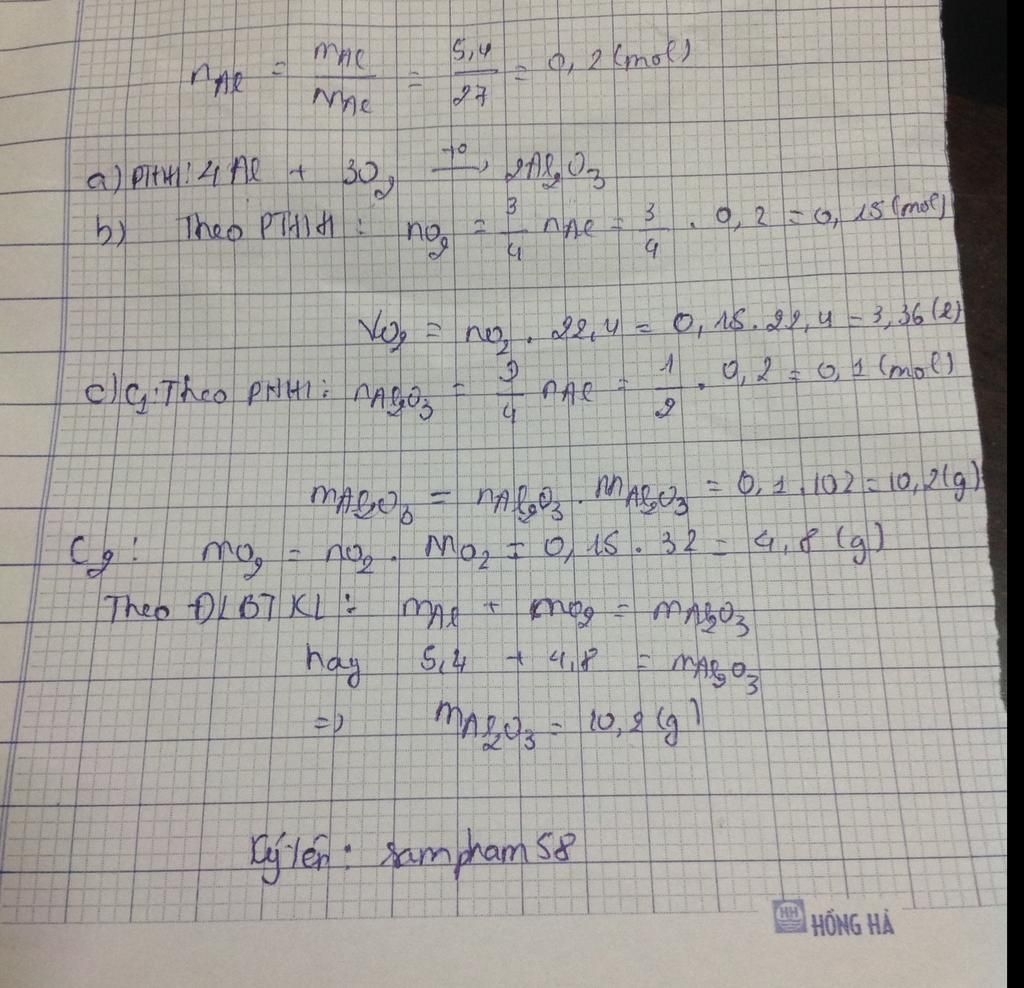 nAl = mAl/MAl = 5,4/27 = 0,2 (mol)
a) PTHH: 4Al + 3O2 →(t°) 2Al2O3
b) Theo PTHH: nO2 = 3/4 nAl = 3/4 . 0,2 = 0,15 (mol)
VO2 = nO2 . 22,4 = 0,15 . 22,4 = 3,36 (l)
c) C1: Theo PTHH: nAl2O3 = 2/4 nAl = 1/2 . 0,2 = 0,1 (mol)
mAl2O3 = nAl2O3 . MAl2O3 = 0,1 . 102 = 10,2 (g)
C2: mO2 = nO2 . MO2 = 0,15 . 32 = 4,8 (g)
Theo ĐLBTKL: mAl + mO2 = mAl2O3
hay 5,4 + 4,8 = mAl2O3
=> mAl2O3 = 10,2 (g)
Ký tên: sampham58
HH HỒNG HÀ